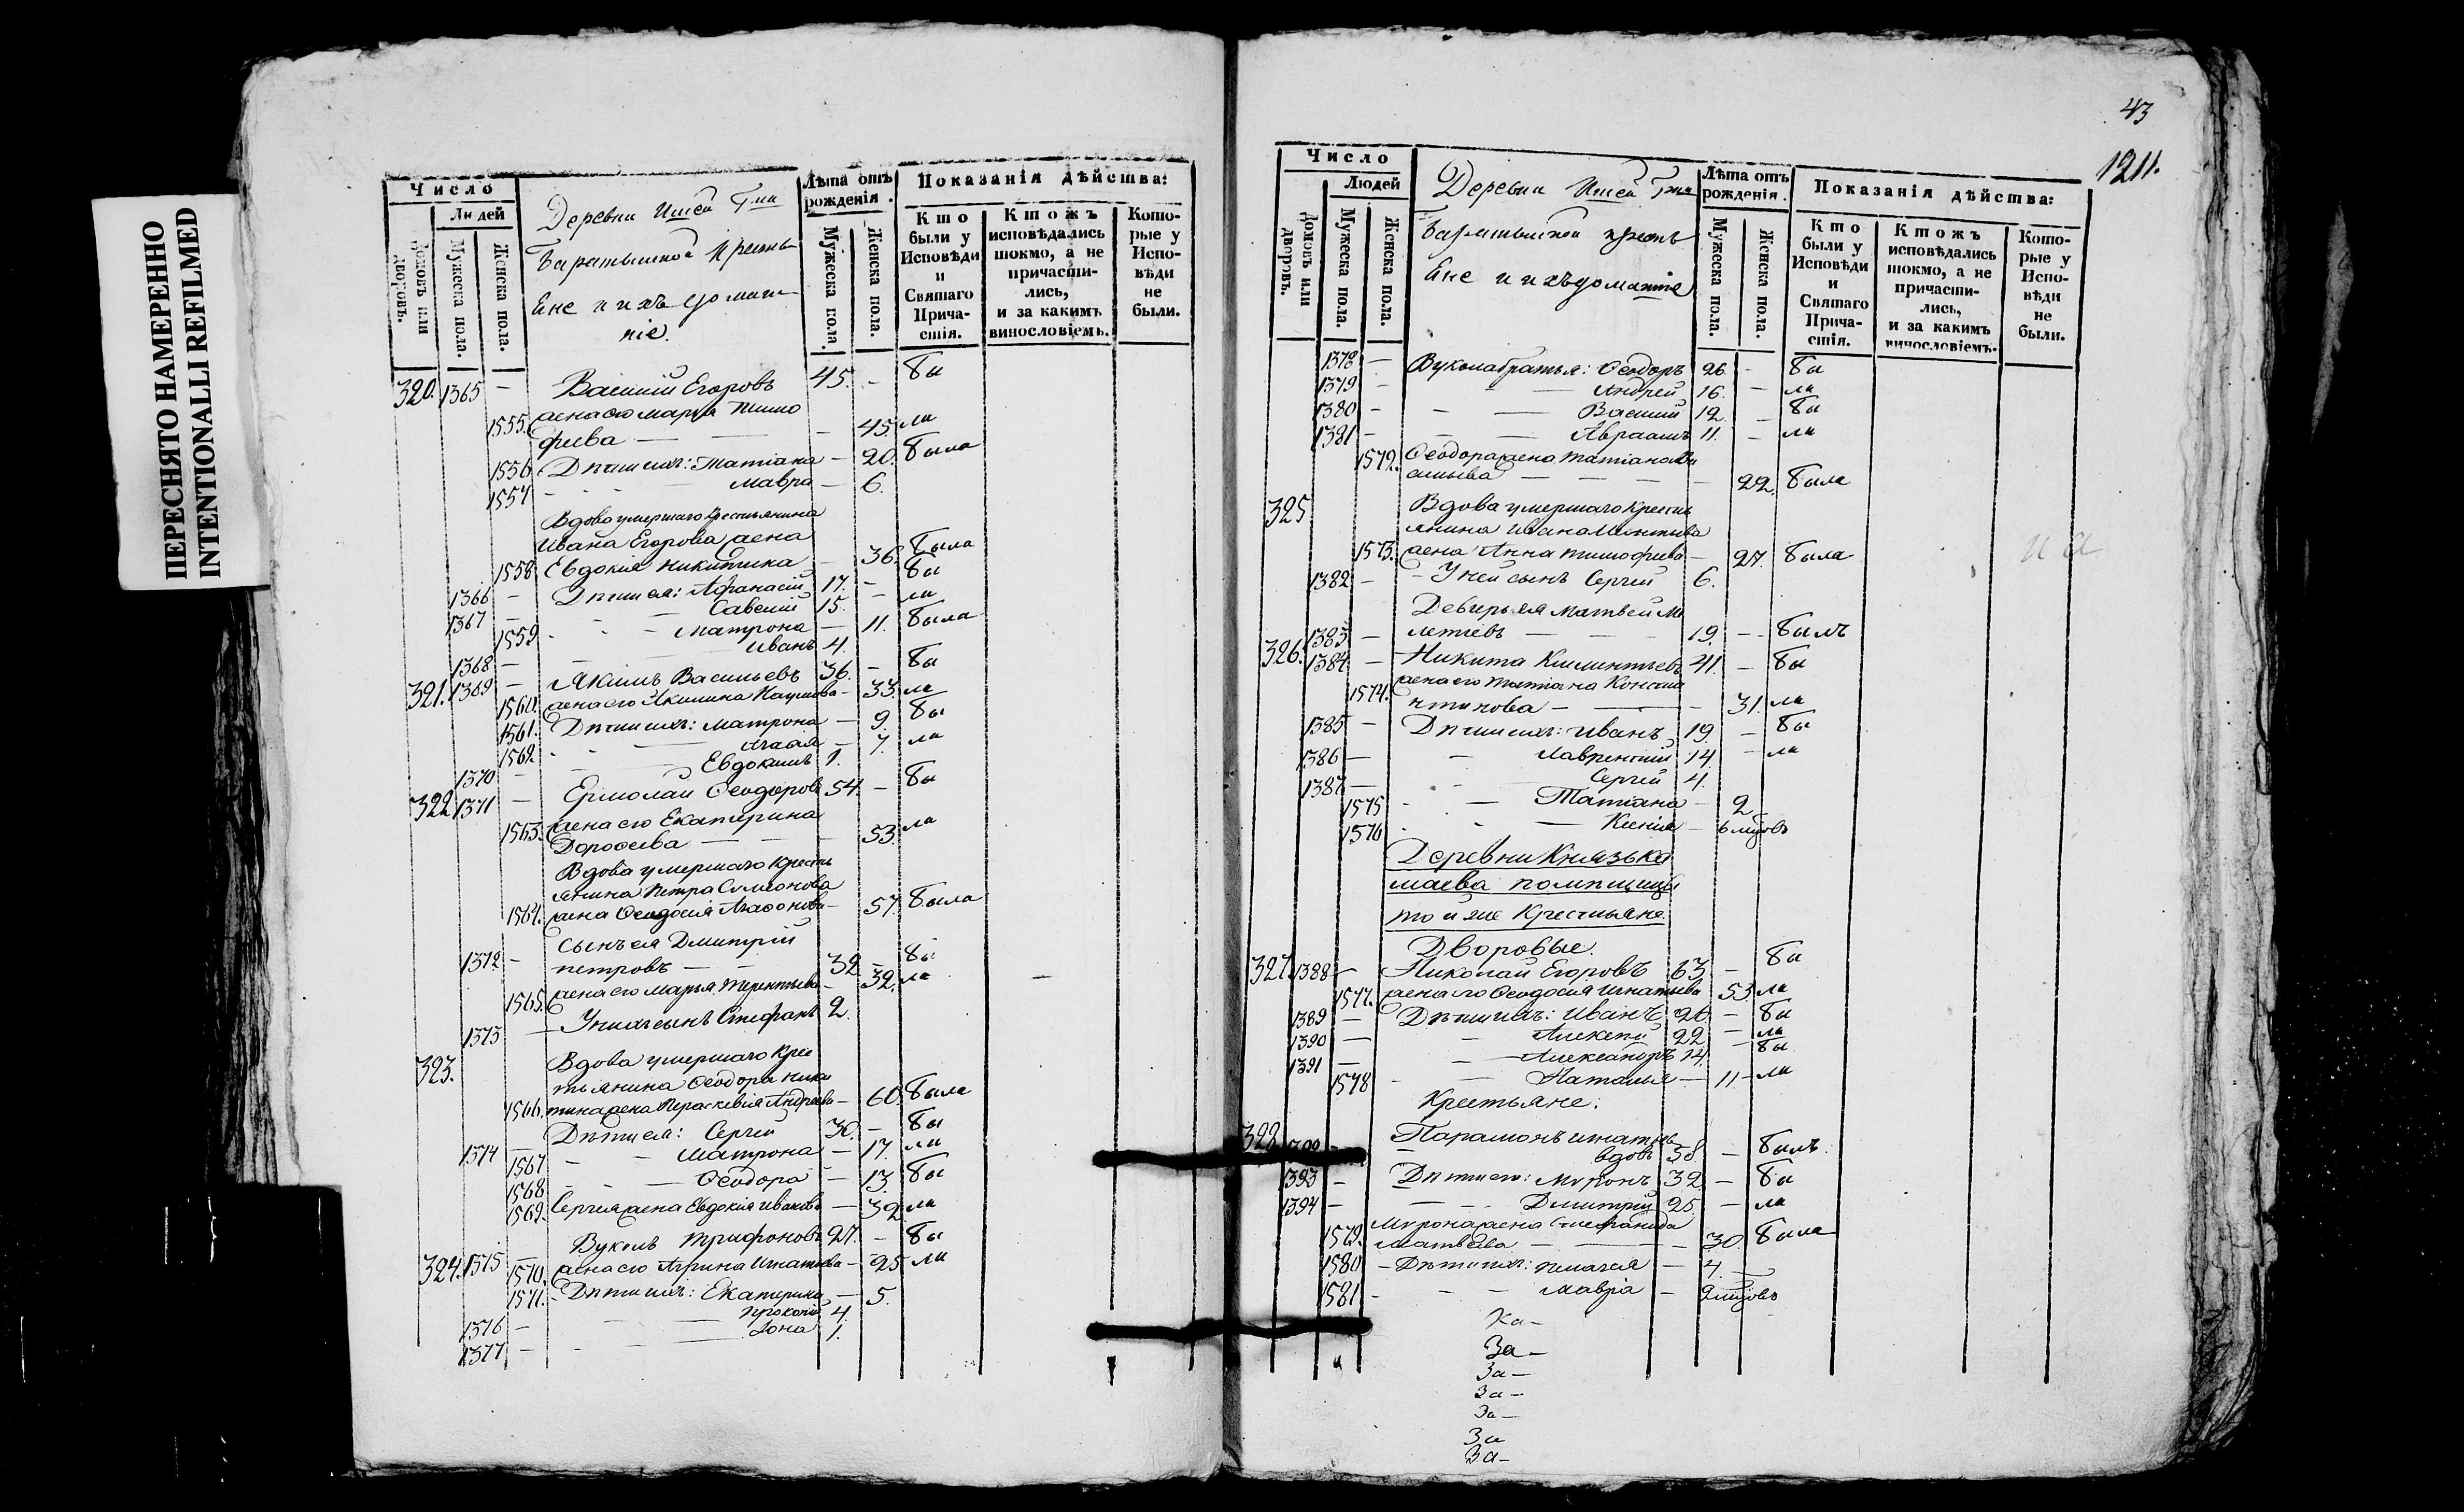 ПЕРЕСНЯТО НАМЕРЕННО
INTENTIONALLI REFILMED
Число
Людей
Домовъ или дворовъ.
Мужеска пола.
Женска пола.
Деревни
крестья
ане и ихъ домаш
ніе.
Лѣта отъ рожденія.
Мужеска пола.
Женска пола.
Показанія дѣйства:
Кто были у Исповѣди и Святаго Причастія.
Ктожъ исповѣдались токмо, а не причастились, и за какимъ винословіемъ.
Которые у Исповѣди не были.
320. 1365 — Василій Егоровъ 45. — бы
жена его Марѳа Тимо
1555. фѣева — — 45. ли
1556 Дѣти ихъ: Татіана — 20. была
1557 - Мавра — 6.
Вдова умершаго крестьянина
Ивана Егорова жена
1558 Евдокія Никитина — 36. была
1366 — Дѣти ея: Аѳанасій 17. — бы
1367 — Савелій 15. — ли
1559. - Матрона — 11. была
1368 — Иванъ 4.
321. 1369 — Якимъ Васильевъ 36. — бы
1560. жена его Акилина Наумова — 33. ли
1561. Дѣти ихъ: Матрона — 9. бы
1562. - Агаѳія — 7. ли
1370 — Евдокимъ 1.
322 1371 — Ермолай Ѳеодоровъ 54. — бы
жена его Екатерина
1563. Дороѳеева — — 53. ли
Вдова умершаго кресть
янина Петра Симеонова
1564. жена Ѳеодосія Агаѳонова — 57. была
Сынъ ея Димитрій
1372 — Петровъ — — 32 — бы
1565. жена его Марья Терентьева — 32. ли
1373 — У нихъ сынъ Стефанъ 2.
323. Вдова умершаго крес
тьянина Ѳеодора Ники
1566. тина жена Параскевія Андреева — 60. была
1374 — Дѣти ея: Сергей 30. — бы
1567 — Матрона — 17. ли
1568 — Ѳеодора — 13. бы
1569. Сергея жена Евдокія Иванова — 32. ли
324. 1375 — Вуколъ Трифоновъ 27. — бы
1570. жена его Ирина Игнатьева — 25 ли
1571. Дѣти ихъ: Екатерина — 5.
1376 — Прокопій 4.
1377 — Іона 1.
43
1211.
Число
Людей
Домовъ или дворовъ.
Мужеска пола.
Женска пола.
Деревни
крестья
ане и ихъ домашніе
Лѣта отъ рожденія.
Мужеска пола.
Женска пола.
Показанія дѣйства:
Кто были у Исповѣди и Святаго Причастія.
Ктожъ исповѣдались токмо, а не причастились, и за какимъ винословіемъ.
Которые у Исповѣди не были.
1378 — Вукола братья: Ѳеодоръ 26. — бы
1379 — Андрей 16. — ли
1380 — Василій 12. — бы
1381 — Авраамъ 11. — ли
1572. Ѳеодора жена Татіана
— 22. была
325 Вдова умершаго кресть
янина Ивана
1573. жена Анна Тимофеева — 27. была
1382 — У ней сынъ Сергей 6.
Деверь ея Матвей
1383 — 19. — былъ
326. 1384 — Никита Климентьевъ 41. — бы
жена его Татіана Конста
1574. нтинова — — 31. ли
1385 — Дѣти ихъ: Иванъ 19. — бы
1386 — Лаврентій 14 — ли
1387 — Сергей 4.
1575 - Татіана — 2
1576 - Ксенія — 6 мцовъ
Деревни Князька
маева помѣщицы
той же крестьяне.
Дворовые.
327 1388 — Николай Егоровъ 63 — бы
1577. жена его Ѳеодосія Игнатьева 53. ли
1389 — Дѣти ихъ: Иванъ 26. — бы
1390 — Алексей 22 — ли
1391 — Александръ 14. бы
1578 - Наталья — 11 — ли
Крестьяне:
328 Парамонъ Игнатьевъ
вдовъ 58 — былъ.
1393 — Дѣти его: Миронъ 32. — бы
1394 — Димитрій 25. — ли
Мирона жена Стефанида
1579. Матвѣева — — 30. была
1580 — Дѣти ихъ: Пелагея — 4.
1581 - Мавра — 2 мцовъ
Ка—
За—
За—
За—
За—
За
За—